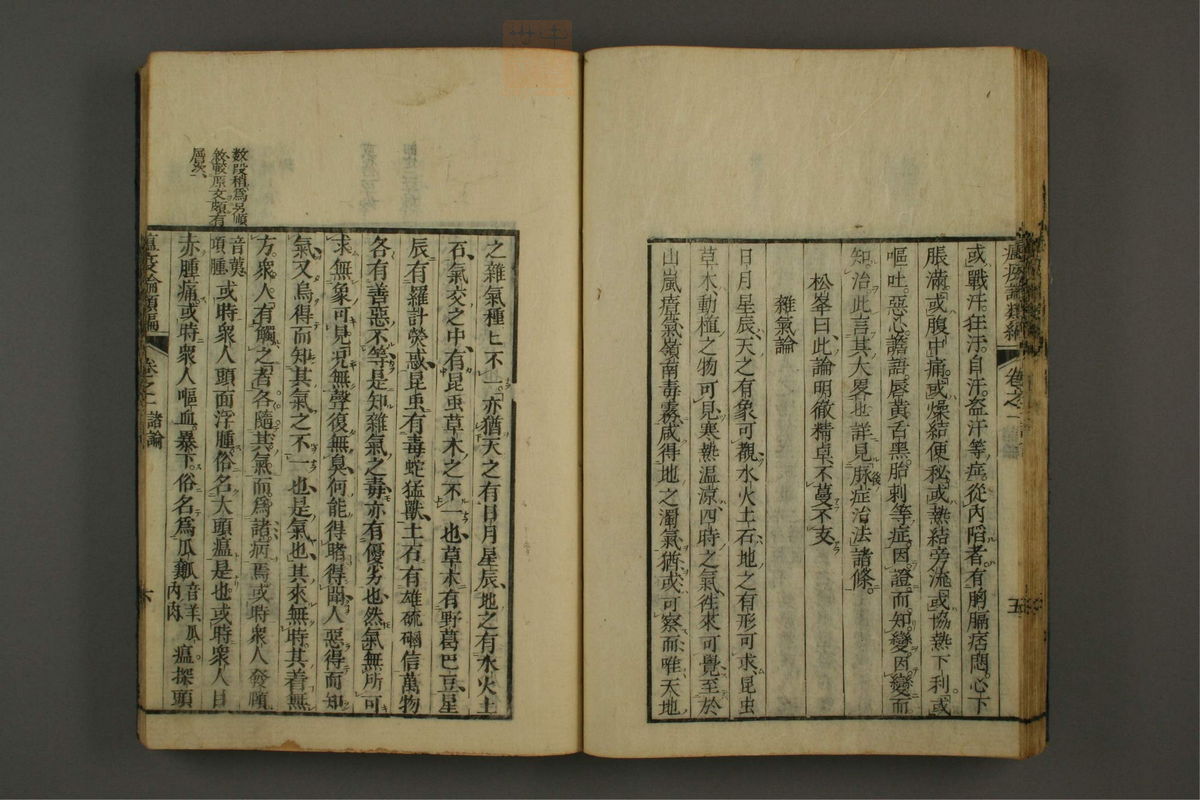 瘟疫論類編
卷之一
五
或戰汗。狂汗。自汗。盜汗等症。從內陷者。有胸膈痞悶。心下
脹滿。或腹中痛。或燥結便秘。或熱結旁流。或協熱下利。或
嘔吐。惡心。譫語。唇黃。舌黑。胎刺等症。因證而知變。因變而
知治。此言其大畧也。詳見脉後症治法諸條。
松峯曰、此論明徹精卓、不蔓不支
雜氣論
日月星辰、天之有象可觀、水火土石、地之有形可求、昆虫
草木、動植之物可見、寒熱温凉、四時之氣徃來可覺、至於
山嵐瘴氣、嶺南毒霧、咸得地之濁氣、猶或可察、而唯天地
之雜氣種〻不一。亦猶天之有日月星辰、地之有水火土
石、氣交之中、有昆虫草木之不一也、草木有野葛巴豆、星
辰有羅計熒惑、昆虫有毒蛇猛獸、土石有雄硫硇信、萬物
各有善惡不等、是知雜氣之毒亦有優劣也、然氣無所可
求、無象可見、況無聲復無臭、何能得睹得聞、人惡得而知
氣、又烏得而知其氣之不一也、是氣也、其來無時、其着無
方、衆人有觸之者、各隨其氣而爲諸病焉、或時衆人發頤
數段稍爲另順
叙、較原文頗有
層次、
音荑。
項腫、或時衆人頭面浮腫、俗名大頭瘟是也、或時衆人目
赤腫痛、或時衆人嘔血。暴下。俗名爲瓜瓤音羊、瓜內肉。瘟探頭
瘟疫論類編
卷之一 諸論
六